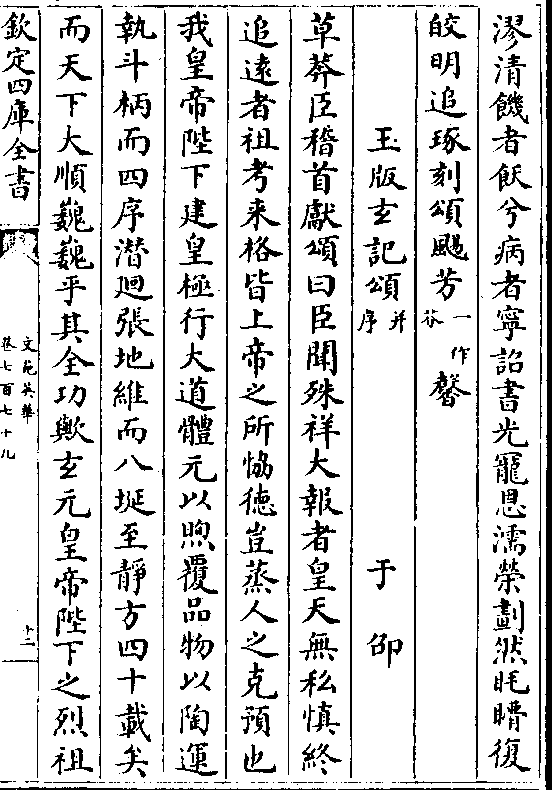 漻清饑者飫兮病者寧詔書光寵恩濡榮劃然眊瞶復
皎明追琢刻頌颺芳一作芬馨
玉版玄記頌并序 于邵
草莽臣稽首獻頌曰臣聞殊祥大報者皇天無私慎終
追逺者祖考来格皆上帝之所恊徳豈蒸人之克預也
我皇帝陛下建皇極行大道體元以煦覆品物以陶運
執斗柄而四序潜廻張地維而八埏至靜方四十載矣
而天下大順巍巍乎其全功歟玄元皇帝陛下之烈祖
欽定四庫全書
文苑英華
卷七百七十九
十二